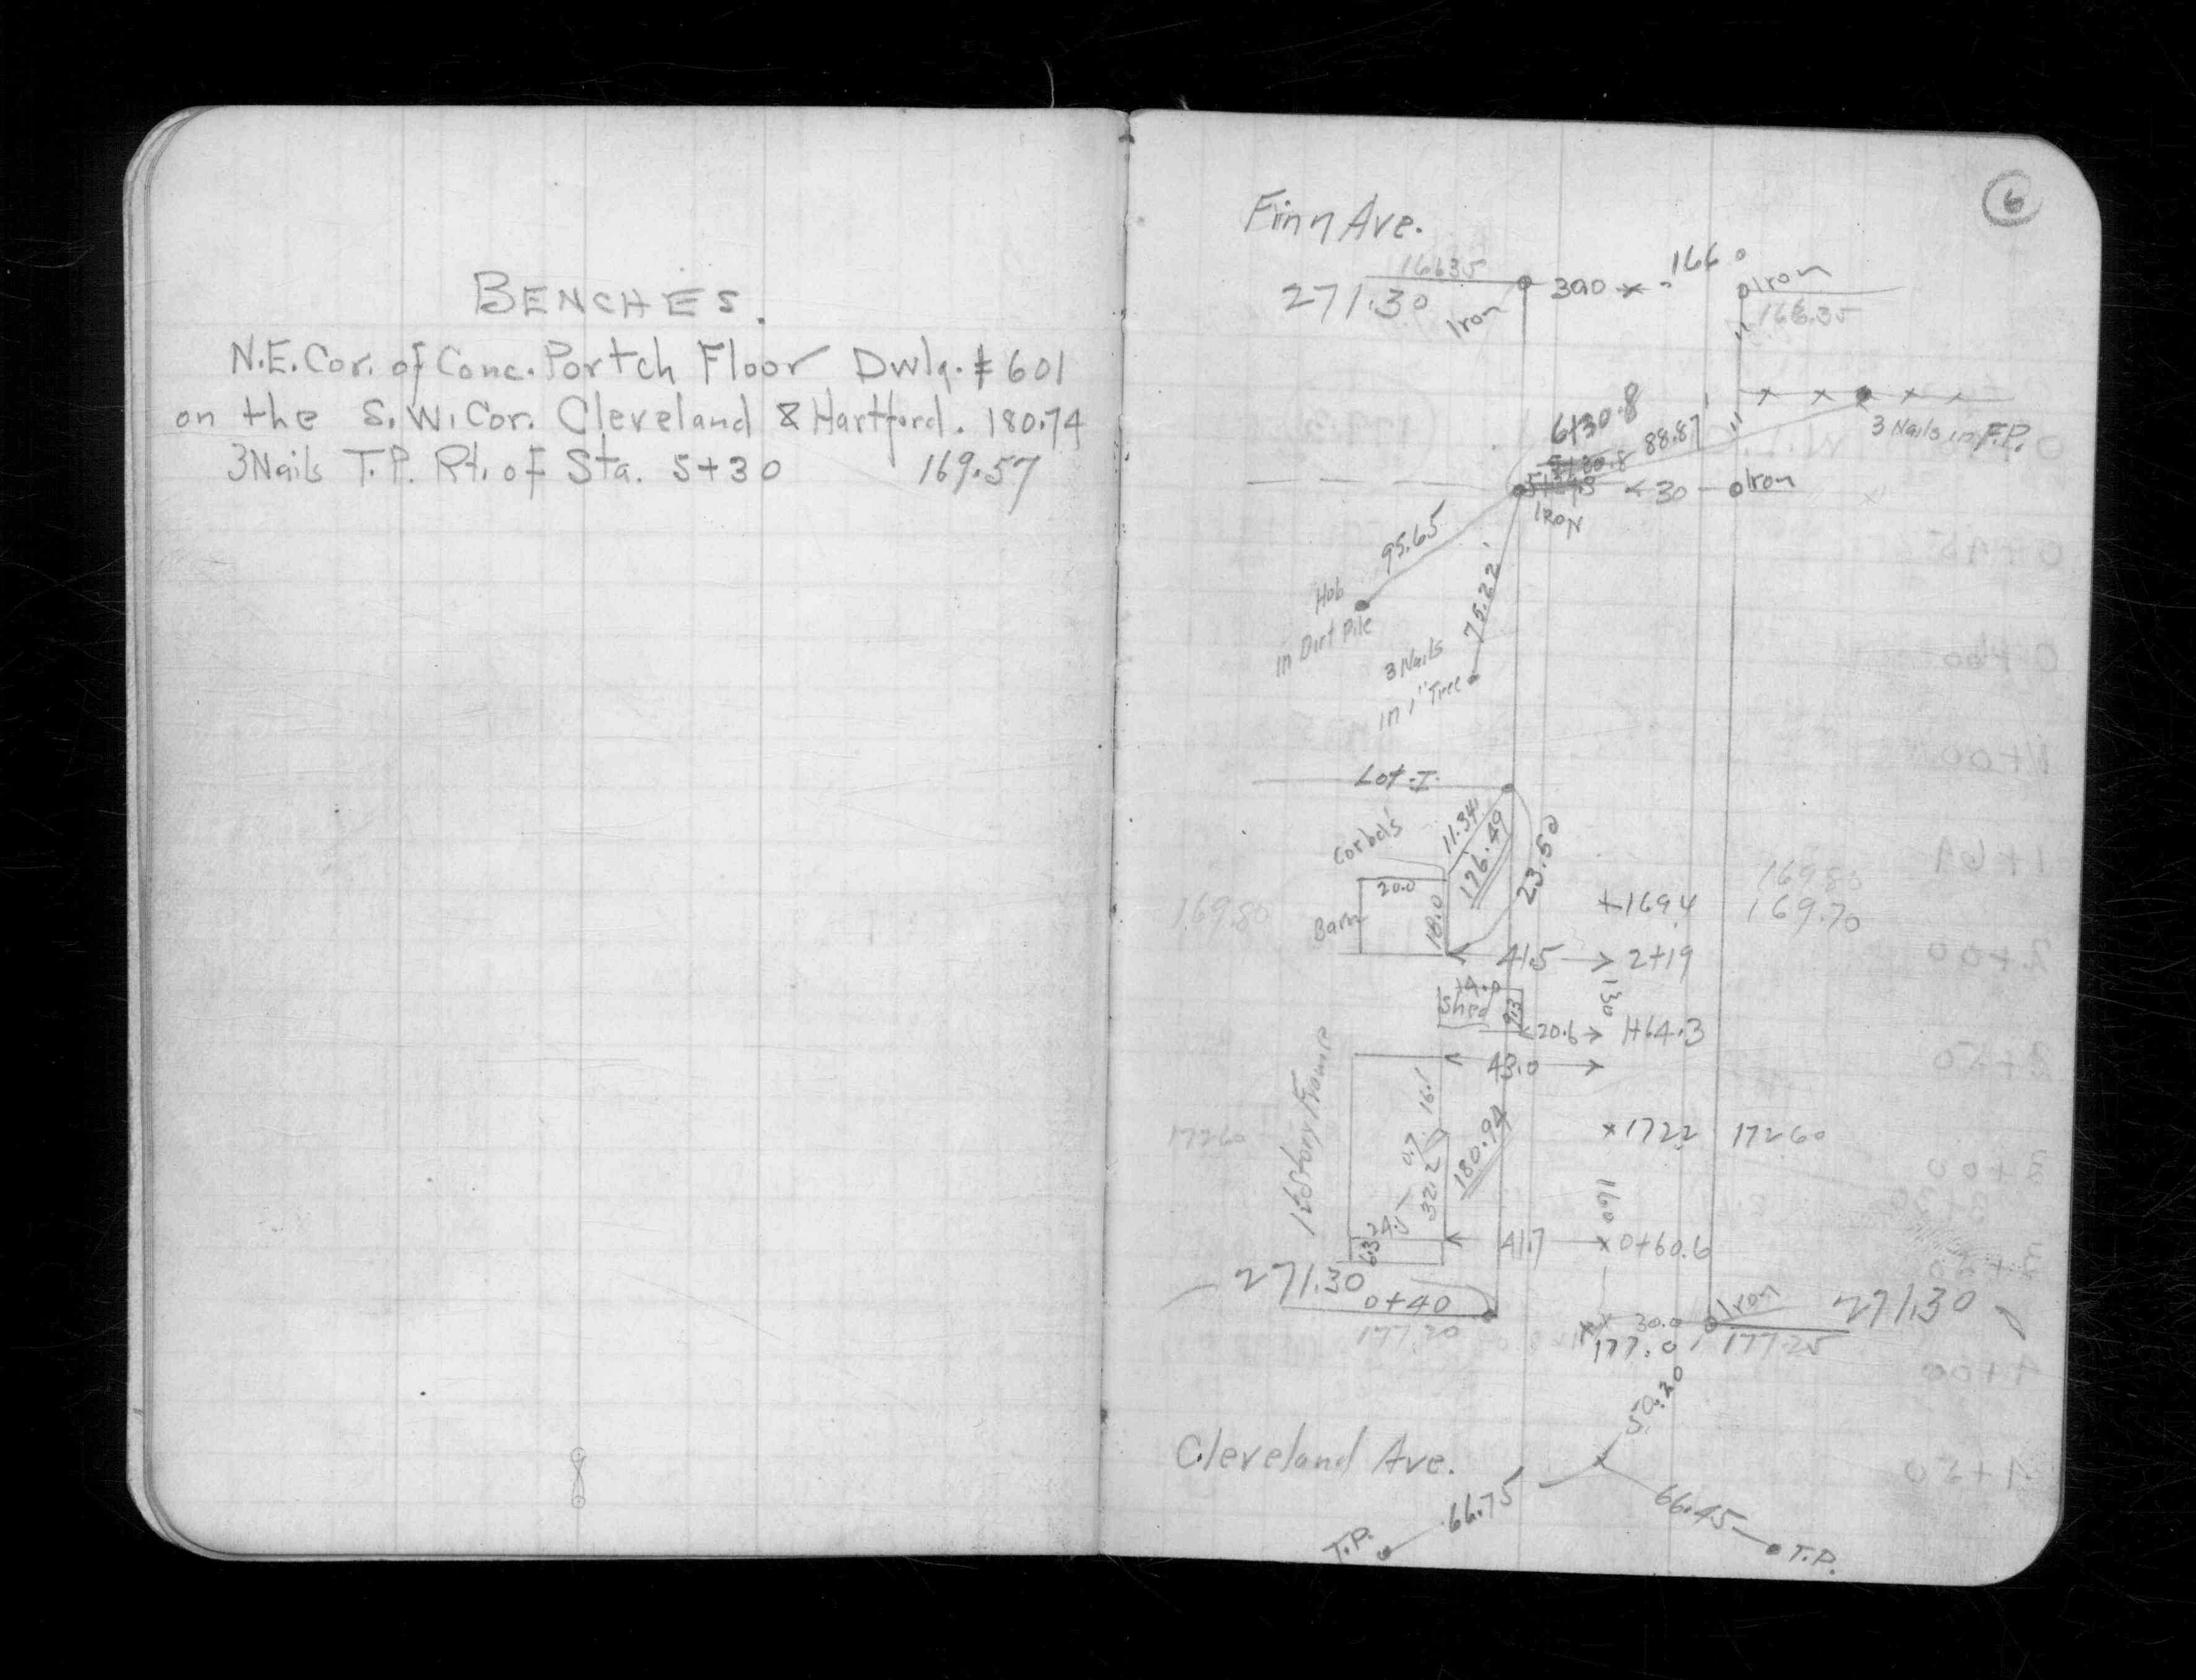 BENCHES.
N.E. Cor. of Conc. Portch Floor Dwlg. # 601
on the S.W. Cor. Cleveland & Hartford. 180.74
3 Nails T.P. Rt. of Sta. 5+30 169.57
6
Finn Ave.
166.35
271.30
Iron
166.0
Iron
166.35
6+30.8
88.87
3 Nails in F.P.
30
Iron
IRON
95.65
Hob
in Dirt Pile
75.22
3 Nails
in 1" Tree
Lot-I
Corbels
11.34
126.49
23.50
20.0
Barn
18.0
169.80
+169.4
169.80
169.70
41.5
2+19
130
Shed
20.6
1+64.3
43.0
1½ Story Frame
16.1
0.7
32.2
180.94
172.60
×172.2
172.60
24.1
6.3
160
41.7
0+60.6
271.30
0+40
177.20
30.0
Iron
271.30
177.0
177.25
50.20
Cleveland Ave.
66.75
66.45
T.P.
T.P.